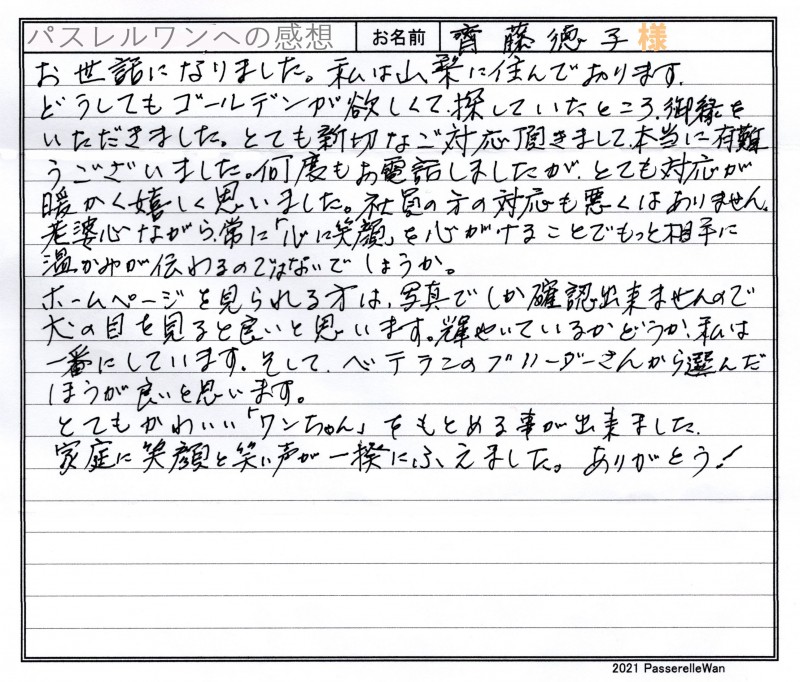 パスレルワンへの感想 お名前 齊藤徳子様
お世話になりました。私は山梨に住んでおります。
どうしてもゴールデンが欲しくて、探していたところ、御縁を
いただきました。とても親切なご対応頂きまして、本当に有難
うございました。何度もお電話しましたが、とても対応が
暖かく嬉しく思いました。社員の方の対応も悪くはありません。
老婆心ながら、常に「心に笑顔」を心がけることでもっと相手に
温かみが伝わるのではないでしょうか。
ホームページを見られる方は、写真でしか確認出来ませんので
犬の目を見ると良いと思います。輝やいているかどうか、私は
一番にしています。そして、ベテランのブリーダーさんから選んだ
ほうが良いと思います。
とてもかわいい「ワンちゃん」をもとめる事が出来ました。
家庭に笑顔と笑い声が一挨にふえました。ありがとう!
2021 PasserelleWan